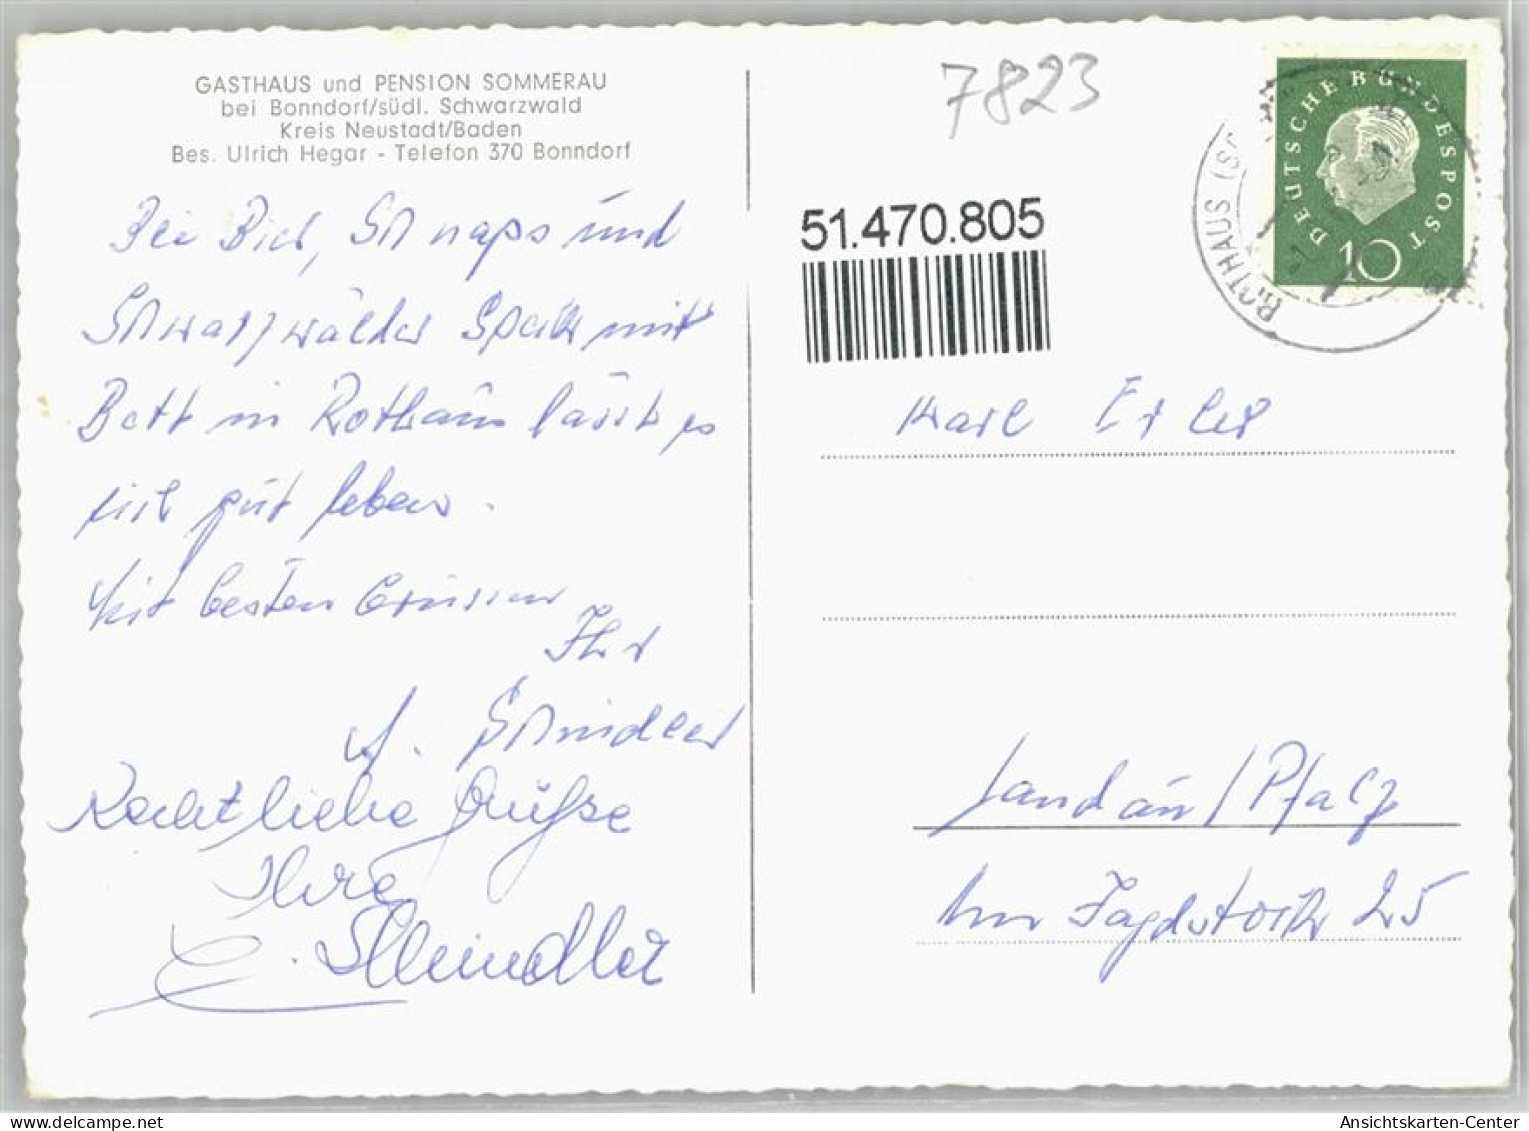 GASTHAUS und PENSION SOMMERAU
bei Bonndorf/südl. Schwarzwald
Kreis Neustadt/Baden
Bes. Ulrich Hegar - Telefon 370 Bonndorf
Bei Bier, Schnaps und
Schwarzwälder Speck mit
Bett in Rothaus lässt es
sich gut leben.
Mit besten Grüssen
Ihr
A. Schindler
Recht liebe Grüße
Ihre
E. Schindler
7823
51.470.805
DEUTSCHE BUNDESPOST
10
ROTHAUS
Karl Erler
Landau/Pfalz
Am 25
Ansichtskarten-Center